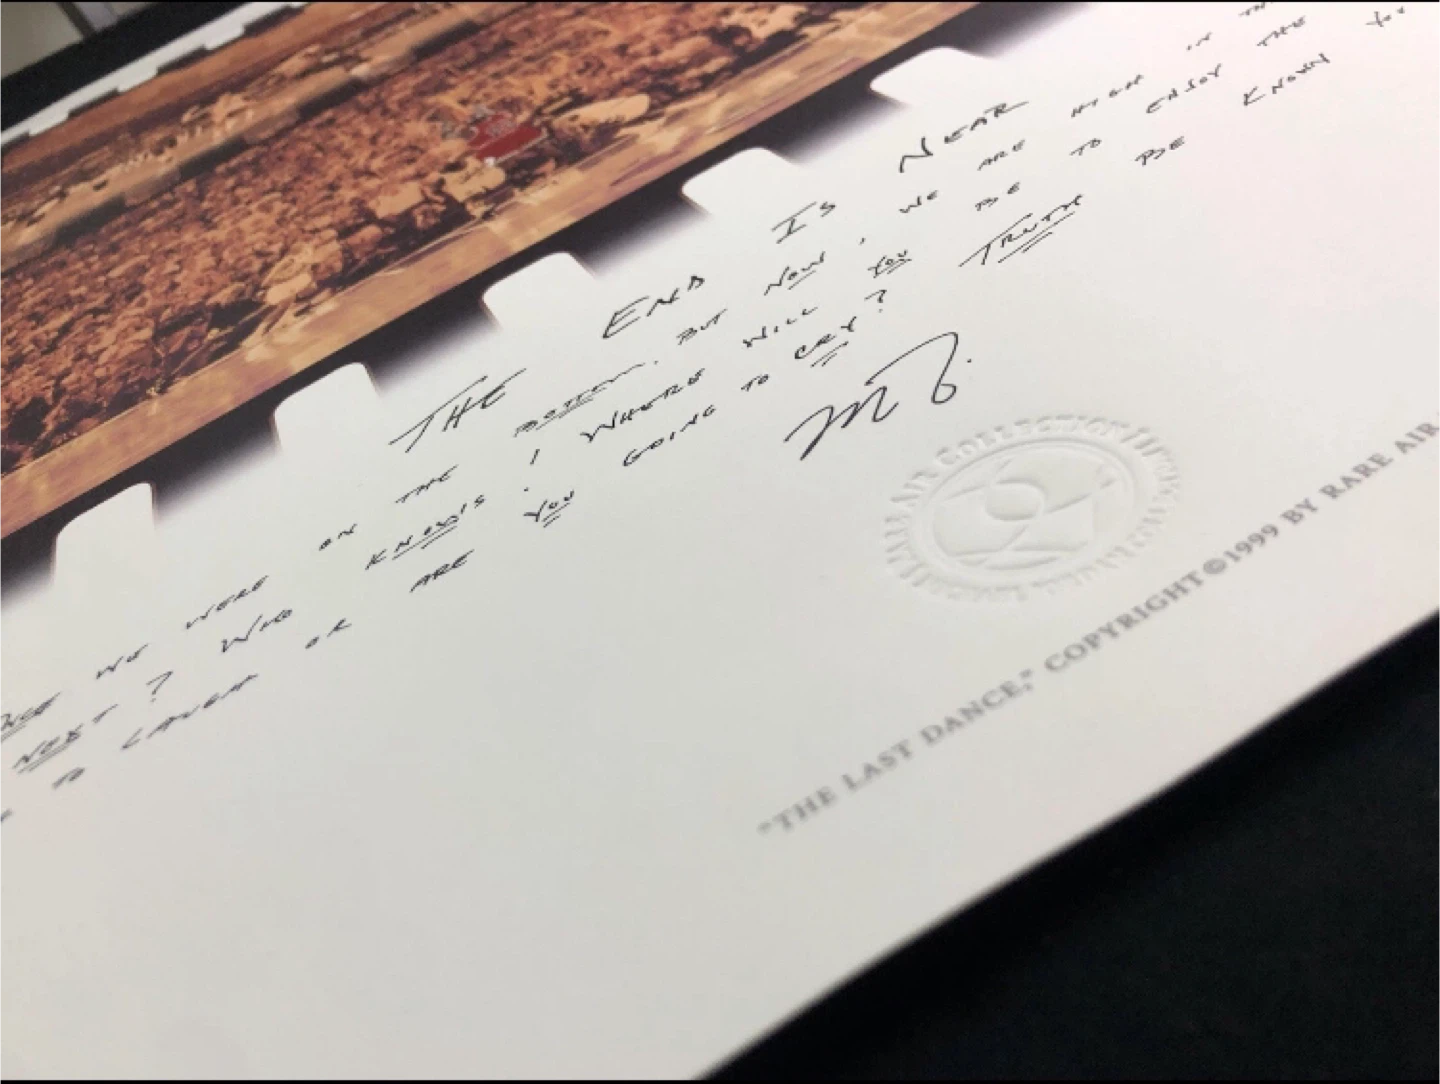 THE END IS NEAR
WE WERE ON THE BOTTOM. BUT NOW, WE ARE HIGH IN
NEXT? WHO KNOWS! WHERE WILL YOU BE TO ENJOY THE
TO LAUGH OR ARE YOU GOING TO CRY? TRUTH BE KNOWN YOU
MJ.
AIR COLLECTION
"THE LAST DANCE," COPYRIGHT ©1999 BY RARE AIR